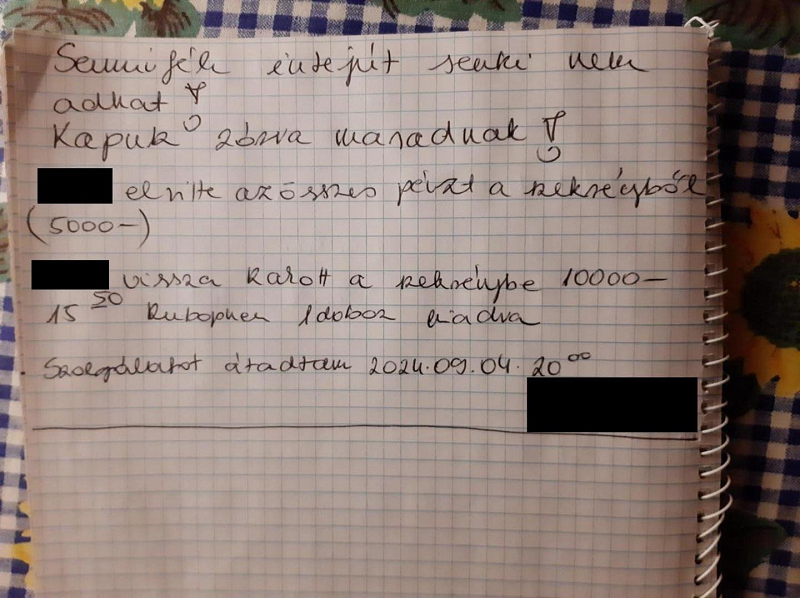 Semmiféle intejút senki nem
adhat!
Kapuk zárva maradnak!
elvitte az összes pénzt a szekrényből
(5000-)
vissza rakott a szekrénybe 10000-
15 50 Rubophen 1 doboz kiadva
Szolgálatot átadtam 2024.09.04. 20 00